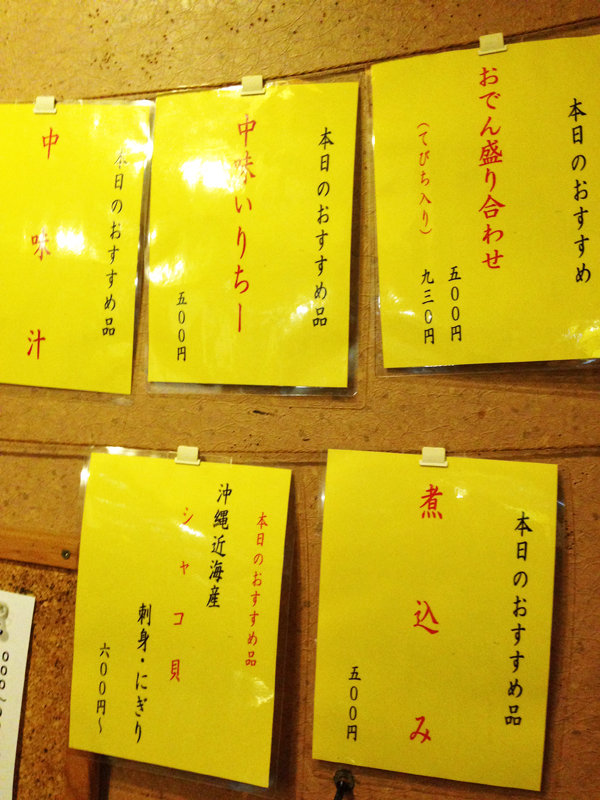 本日のおすすめ
おでん盛り合わせ
五〇〇円
(てびち入り)
九三〇円
本日のおすすめ品
中味いりちー
五〇〇円
本日のおすすめ品
中味汁
本日のおすすめ品
煮込み
五〇〇円
本日のおすすめ品
沖縄近海産
シャコ貝
刺身・にぎり
六〇〇円~